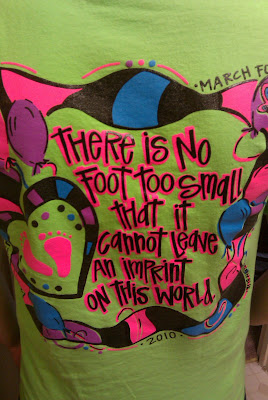 · MARCH FO
THERE IS NO
FOOT TOO SMALL
THAT IT
CANNOT LEAVE
AN IMPRINT
ON THIS WORLD.
· 2010 ·